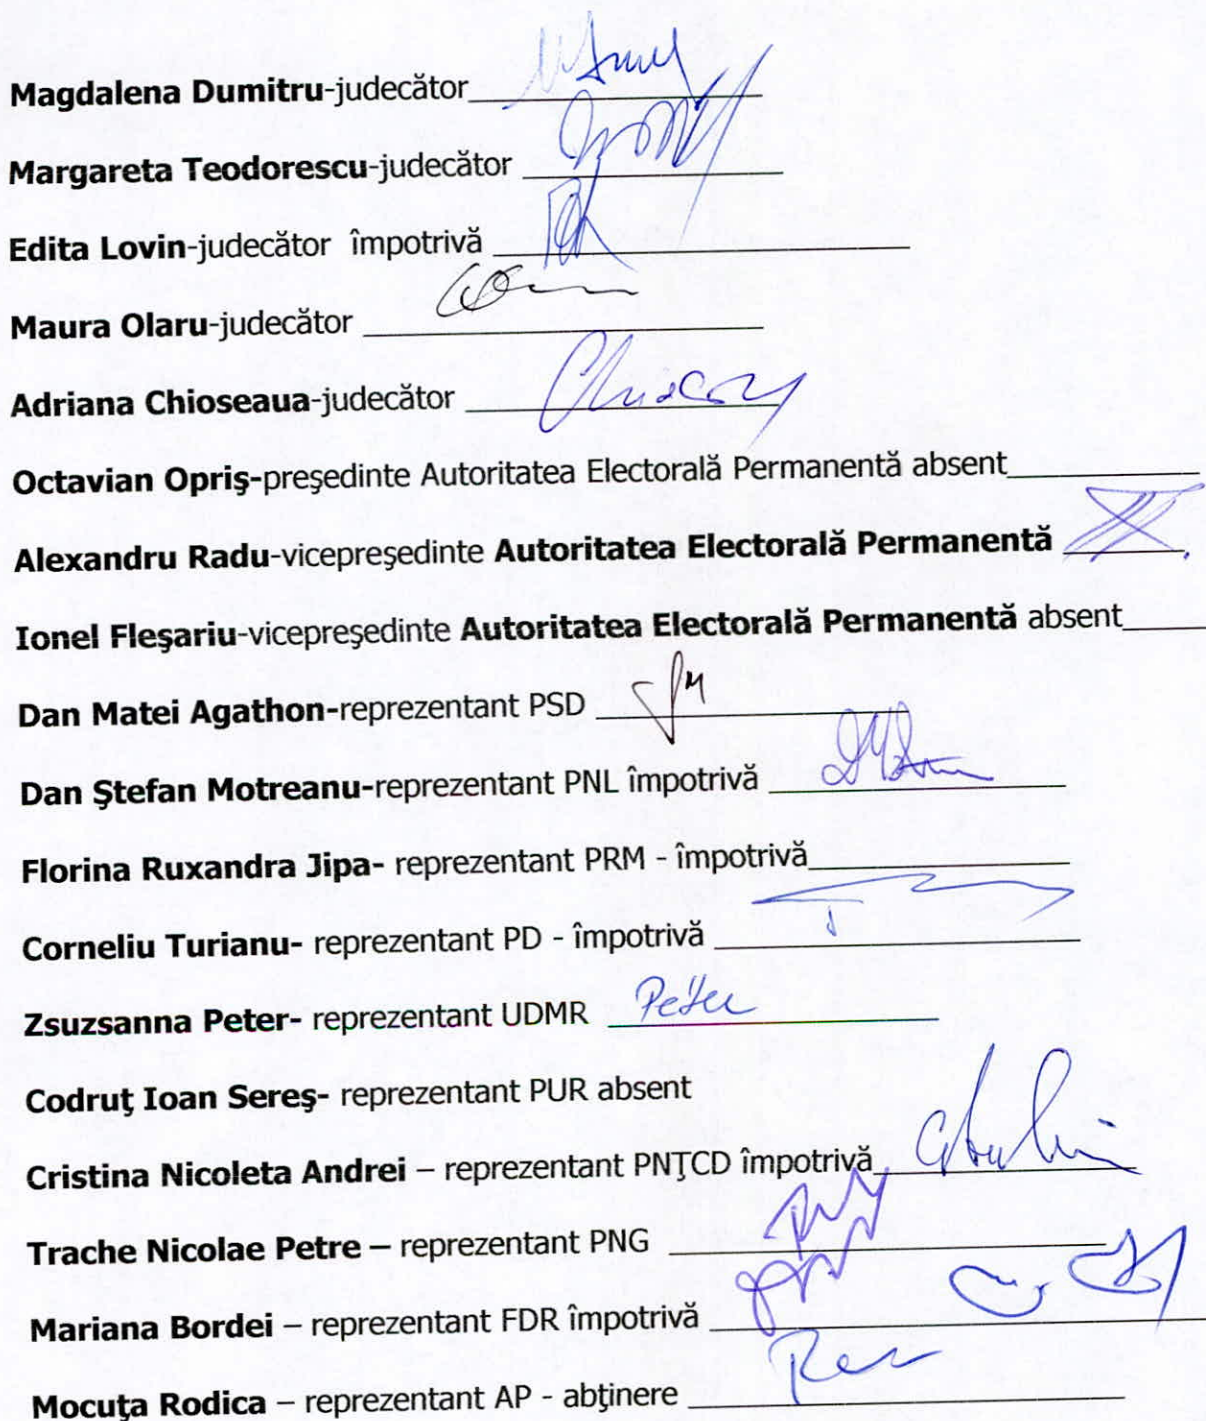 Magdalena Dumitru-judecător
Margareta Teodorescu-judecător
Edita Lovin-judecător împotrivă
Maura Olaru-judecător
Adriana Chioseaua-judecător
Octavian Opriş-preşedinte Autoritatea Electorală Permanentă absent
Alexandru Radu-vicepreşedinte Autoritatea Electorală Permanentă
Ionel Fleşariu-vicepreşedinte Autoritatea Electorală Permanentă absent
Dan Matei Agathon-reprezentant PSD
Dan Ştefan Motreanu-reprezentant PNL împotrivă
Florina Ruxandra Jipa- reprezentant PRM - împotrivă
Corneliu Turianu- reprezentant PD - împotrivă
Zsuzsanna Peter- reprezentant UDMR Peter
Codruţ Ioan Sereş- reprezentant PUR absent
Cristina Nicoleta Andrei – reprezentant PNŢCD împotrivă
Trache Nicolae Petre – reprezentant PNG
Mariana Bordei – reprezentant FDR împotrivă
Mocuţa Rodica – reprezentant AP - abţinere